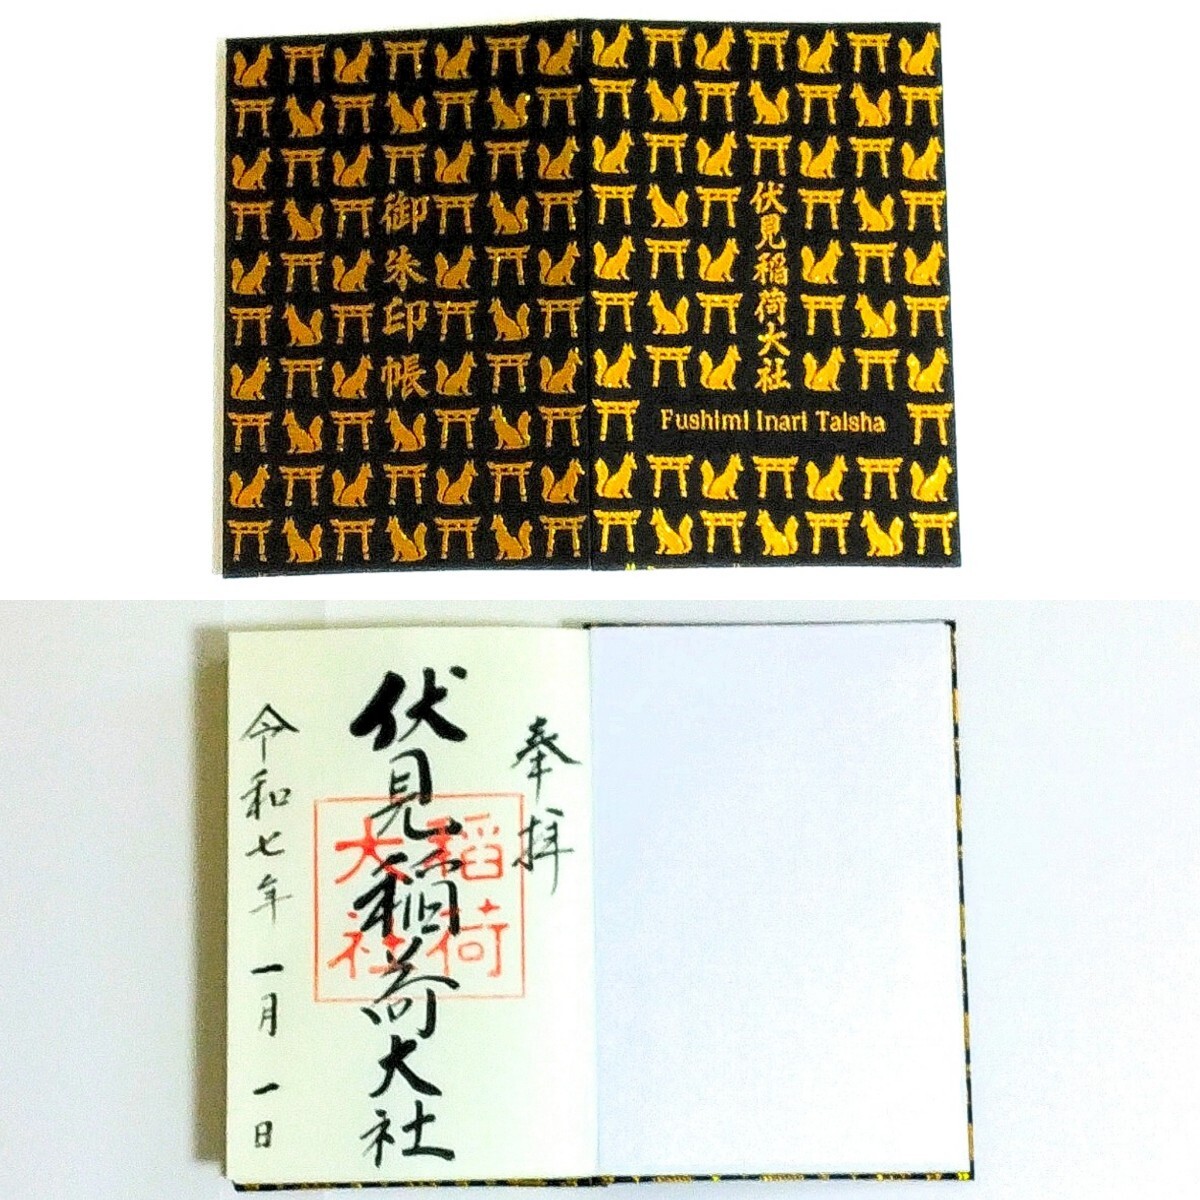 御朱印帳
伏見稲荷大社
Fushimi Inari Taisha
奉拝
伏見稲荷大社
稲荷
大社
令和七年一月一日